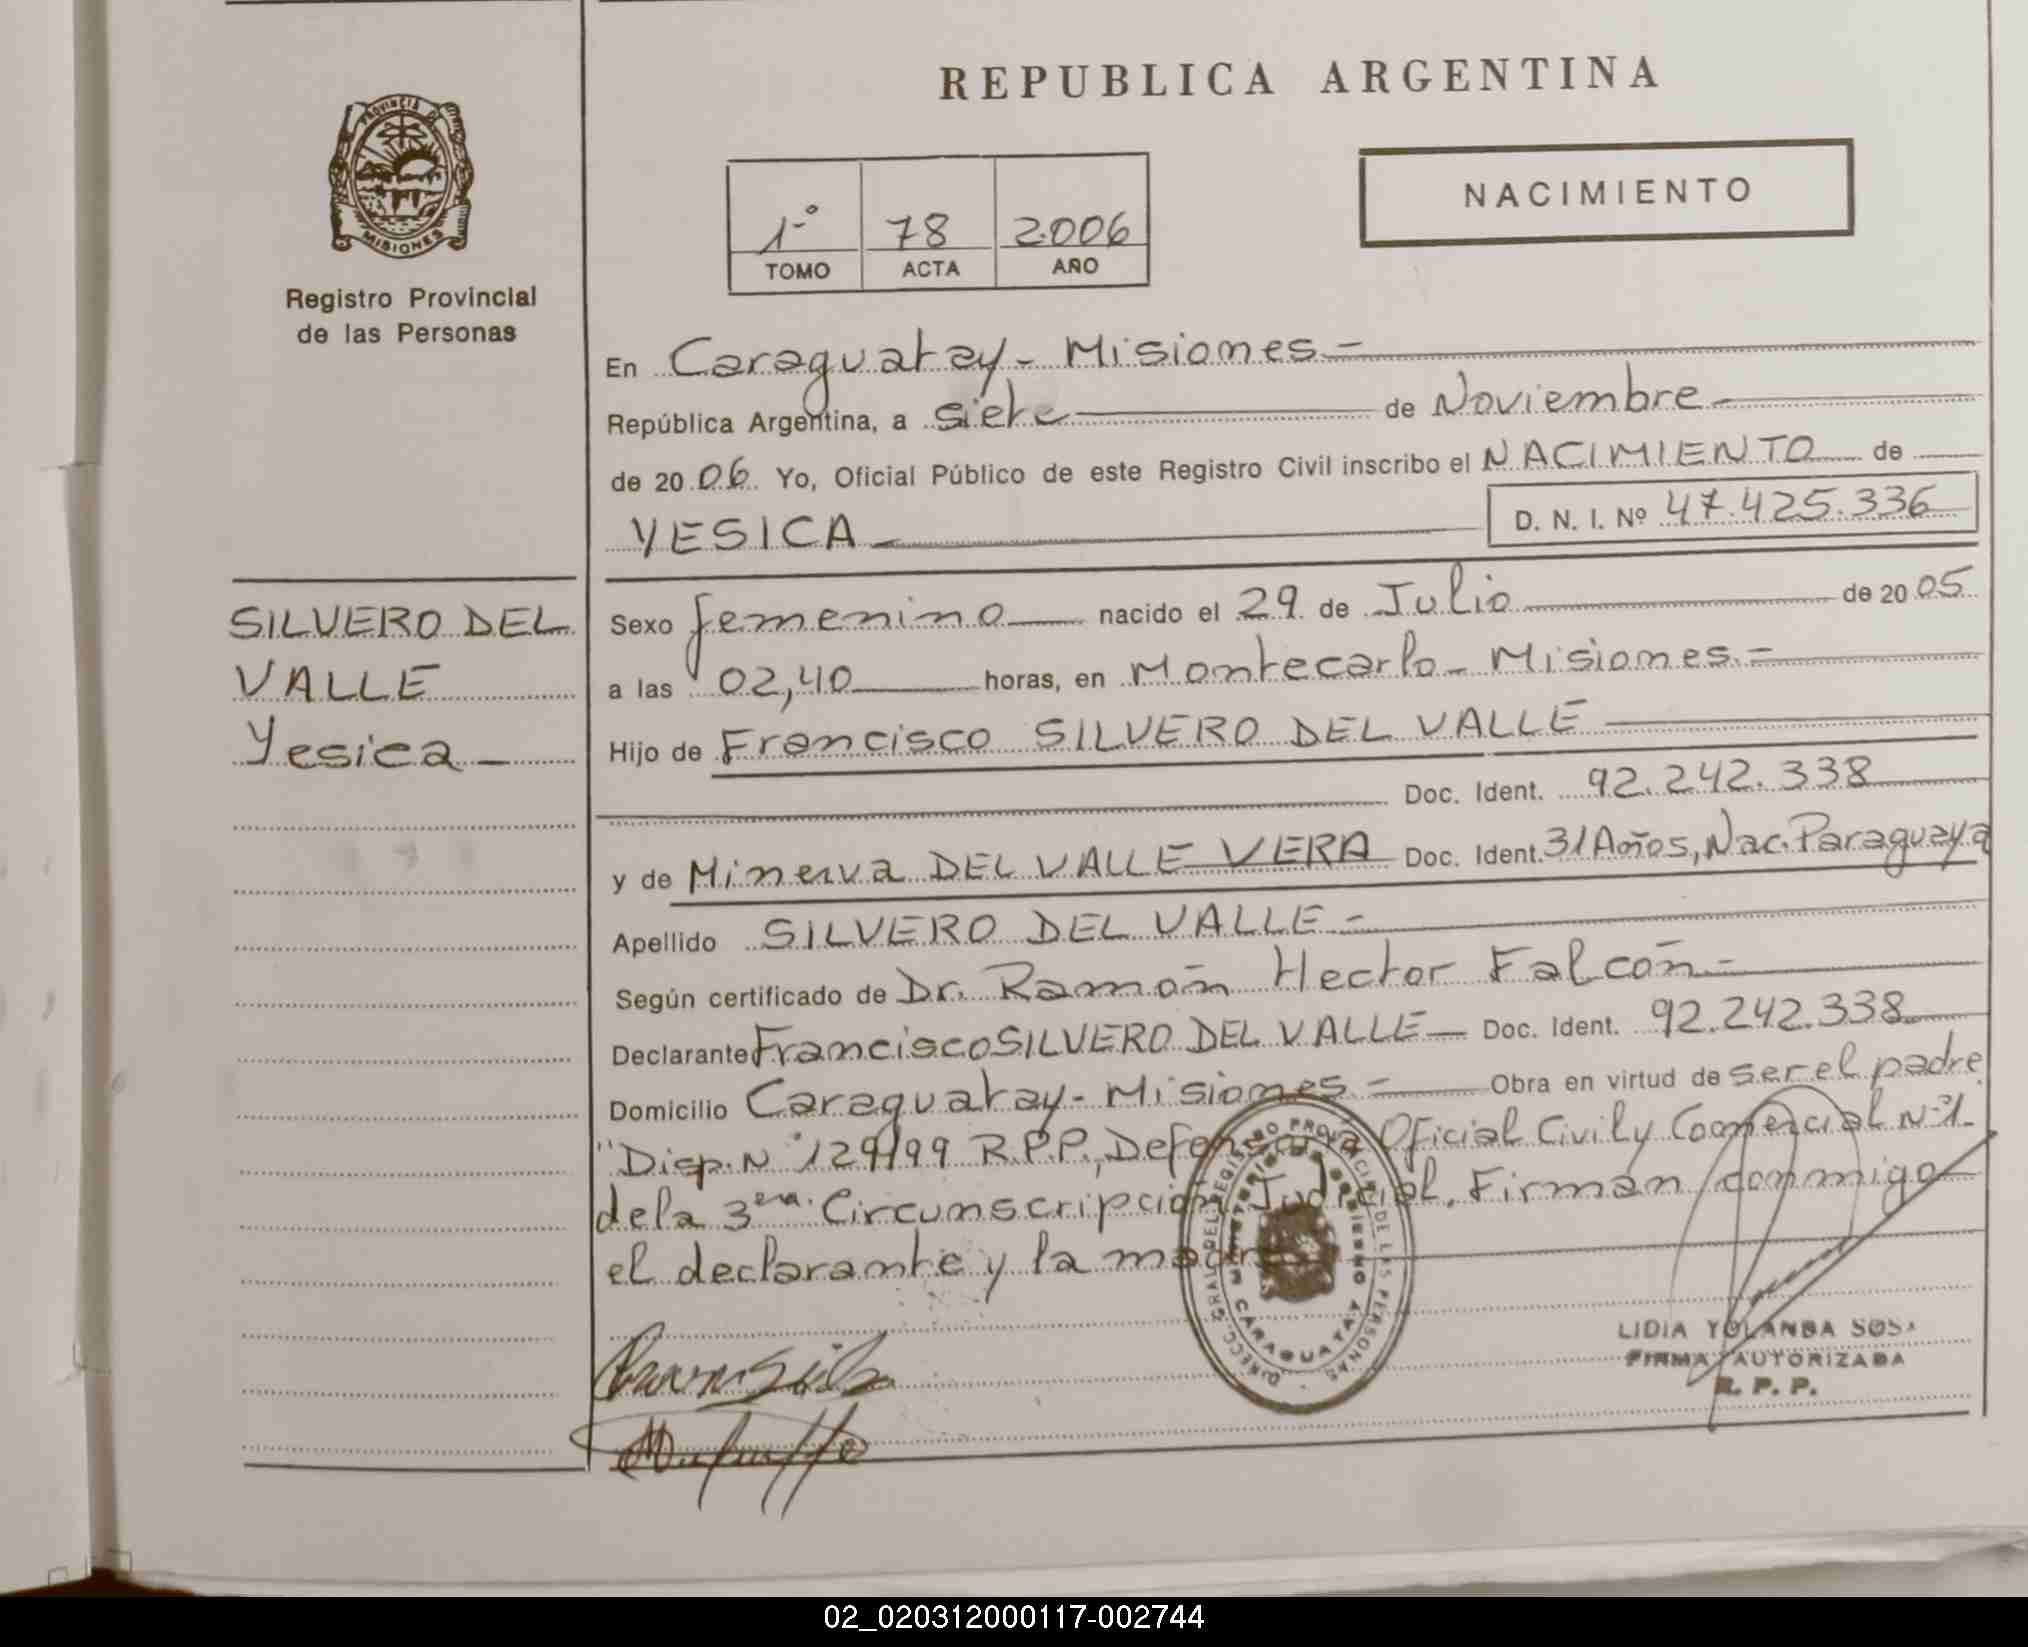 PROVINCIA DE
MISIONES
Registro Provincial
de las Personas
REPUBLICA ARGENTINA
1º 78 2006
TOMO ACTA AÑO
NACIMIENTO
En Caraguatay - Misiones.-
República Argentina, a siete de Noviembre
de 2006. Yo, Oficial Público de este Registro Civil inscribo el NACIMIENTO de
YESICA
D. N. I. Nº 47.425.336
SILVERO DEL
VALLE
Yesica
Sexo femenino nacido el 29 de Julio de 2005
a las 02,40 horas, en Montecarlo - Misiones.-
Hijo de Francisco SILVERO DEL VALLE
Doc. Ident. 92.242.338
y de Minerva DEL VALLE VERA Doc. Ident. 31 Años, Nac. Paraguaya
Apellido SILVERO DEL VALLE.-
Según certificado de Dr. Ramón Hector Falcón.-
Declarante Francisco SILVERO DEL VALLE Doc. Ident. 92.242.338
Domicilio Caraguatay - Misiones.- Obra en virtud de ser el padre
"Disp. N° 129/99 R.P.P., Defensoria Oficial Civil y Comercial N°1-
de la 3era. Circunscripción Judicial. Firman conmigo
el declarante y la madre
DIRECC. GRAL DEL REGISTRO PROVINCIAL DE LAS PERSONAS
MINISTERIO DE GOBIERNO
CARAGUATAY
LIDIA YOLANDA SOSA
FIRMA AUTORIZADA
R. P. P.
02_020312000117-002744